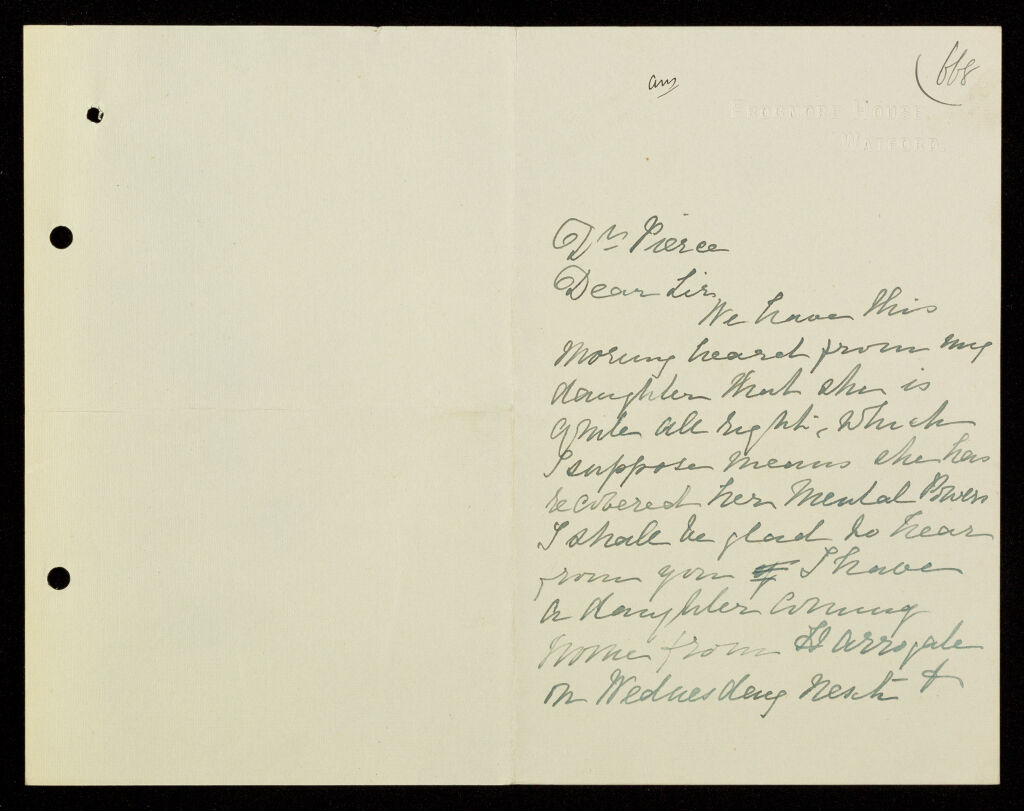 ans
668
FROGMORE HOUSE,
WATFORD.
Dr Pierce
Dear Sir,
We have this
Morning heard from my
daughter that she is
quite all right, which
I suppose means she has
recovered her Mental Powers
I shall be glad to hear
from you if I have
a daughter coming
home from Harrogate
on Wednesday next &